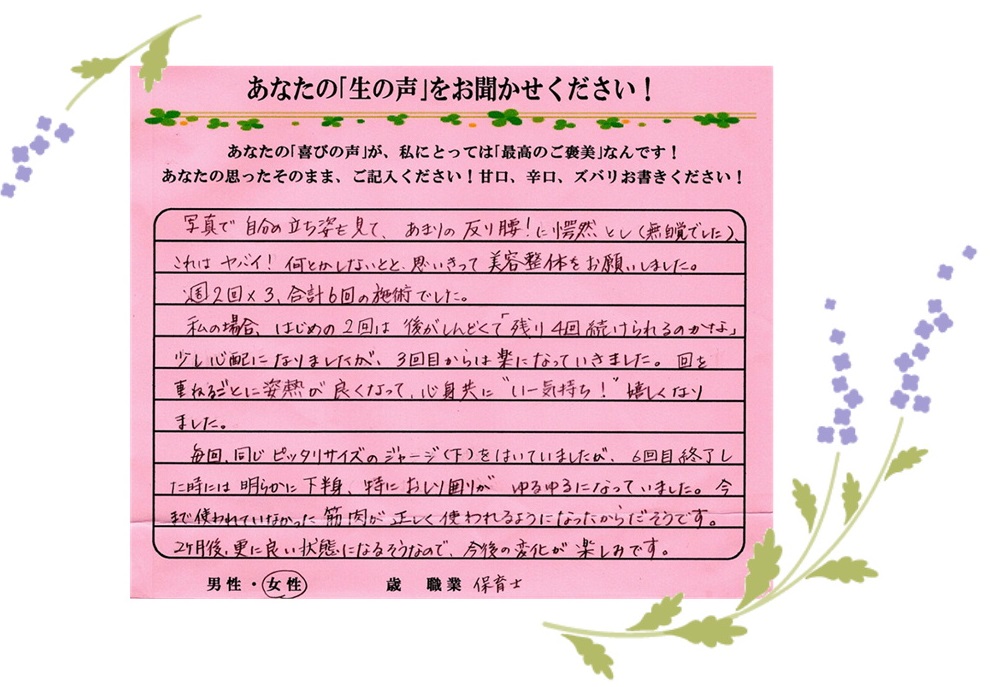 あなたの「生の声」をお聞かせください！
あなたの「喜びの声」が、私にとっては「最高のご褒美」なんです！
あなたの思ったそのまま、ご記入ください！甘口、辛口、ズバリお書きください！
写真で自分の立ち姿を見て、あまりの反り腰！に愕然とし（無自覚でした）、
これはヤバイ！何とかしないとと、思いきって美容整体をお願いしました。
週2回×3、合計6回の施術でした。
私の場合、はじめの2回は後がしんどくて「残り4回続けられるのかな」
少し心配になりましたが、3回目からは楽になっていきました。回を
重ねるごとに姿勢が良くなって、心身共に"いー気持ち！"嬉しくなり
ました。
毎回、同じピッタリサイズのジャージ（下）をはいていましたが、6回目終了し
た時には明らかに下半身、特におしり回りがゆるゆるになっていました。今
まで使われていなかった筋肉が正しく使われるようになったからだそうです。
2ヶ月後、更に良い状態になるそうなので、今後の変化が楽しみです。
男性・女性 歳 職業 保育士